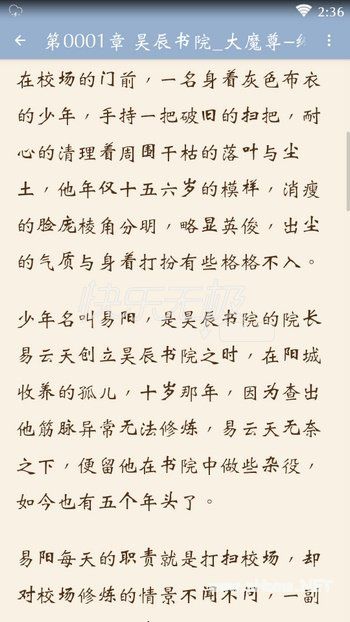 2:36
第0001章 昊辰书院_大魔尊-纟
在校场的门前，一名身着灰色布衣
的少年，手持一把破旧的扫把，耐
心的清理着周围干枯的落叶与尘
土，他年仅十五六岁的模样，消瘦
的脸庞棱角分明，略显英俊，出尘
的气质与身着打扮有些格格不入。
少年名叫易阳，是昊辰书院的院长
易云天创立昊辰书院之时，在阳城
收养的孤儿，十岁那年，因为查出
他筋脉异常无法修炼，易云天无奈
之下，便留他在书院中做些杂役，
如今也有五个年头了。
易阳每天的职责就是打扫校场，却
对校场修炼的情景不闻不问，一副